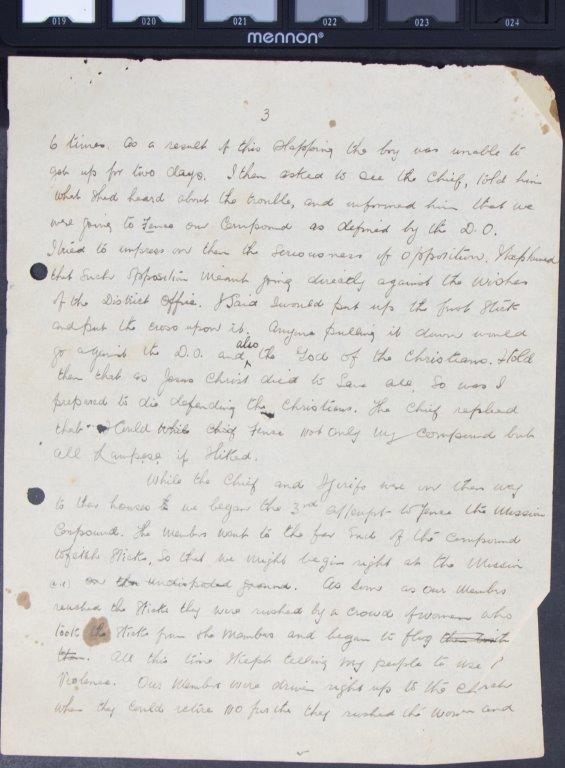 019 020 021 022 023 024
mennon®
3
6 times. As a result of this slapping the boy was unable to
get up for two days. I then asked to see the Chief, told him
what I had heard about the trouble, and informed him that we
were going to fence our Compound as defined by the D.O.
I tried to impress on them the seriousness of opposition. I explained
that such opposition meant going directly against the wishes
of the District Office. I said I would put up the first stick
and put the cross upon it. Anyone pulling it down would
go against the D.O. and also the God of the Christians. I told
them that as Jesus Christ died to save all, so was I
prepared to die defending the Christians. The Chief replied
that I could fence not only my compound but
all if I liked.
While the Chief and were on their way
to their houses we began the 3rd attempt to fence the Mission
Compound. The members went to the far end of the compound
to fetch sticks, so that we might begin right at the Mission
on undisputed ground. As soon as our members
reached the sticks they were rushed by a crowd of women who
took the sticks from the members and began to flog
them. All this time I kept telling my people to use
violence. Our members were driven right up to the Church
when they could retire no further they rushed the women and